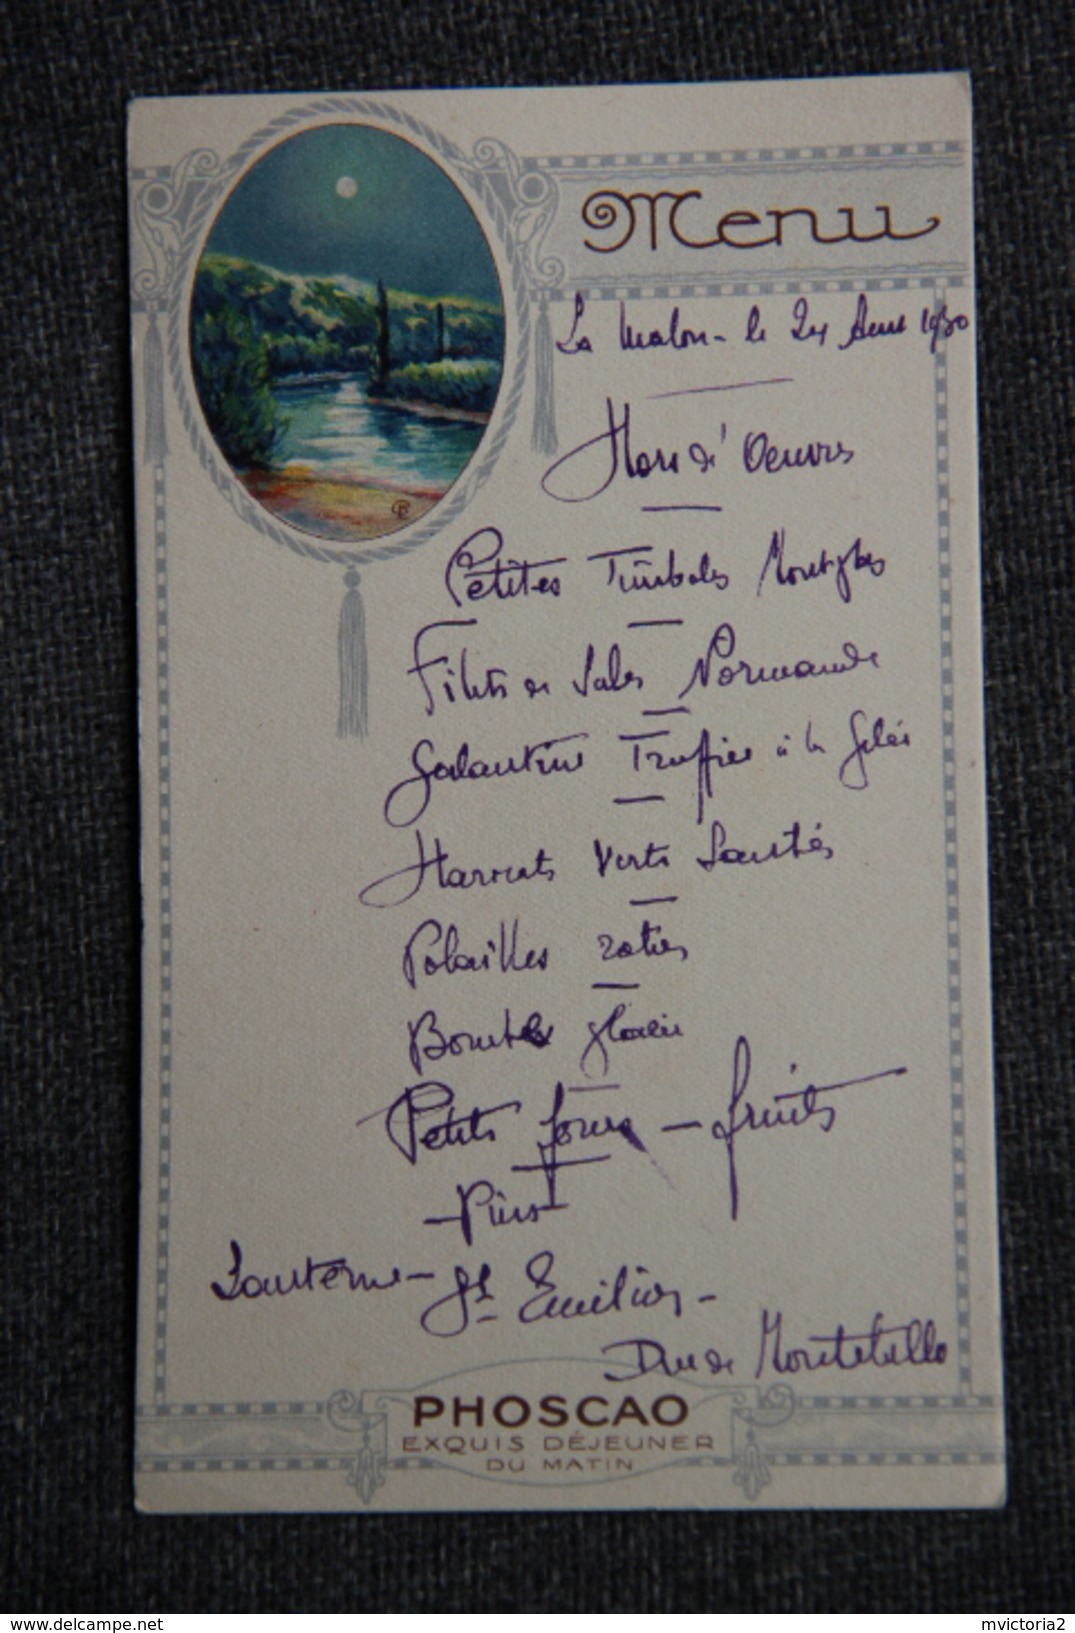 Menu
La Malou - le 24 1930
Hors d'Oeuvres
Petites Timbales
Filets de Soles Normande
Galantine Truffée à la Gelée
Haricots Verts Sautés
Volailles roties
Bombe glacée
Petits fours - fruits
- Vins -
Sauterne - St Emilion -
Duc de Montebello
PHOSCAO
EXQUIS DÉJEUNER
DU MATIN
delcampe.net
mvictoria2